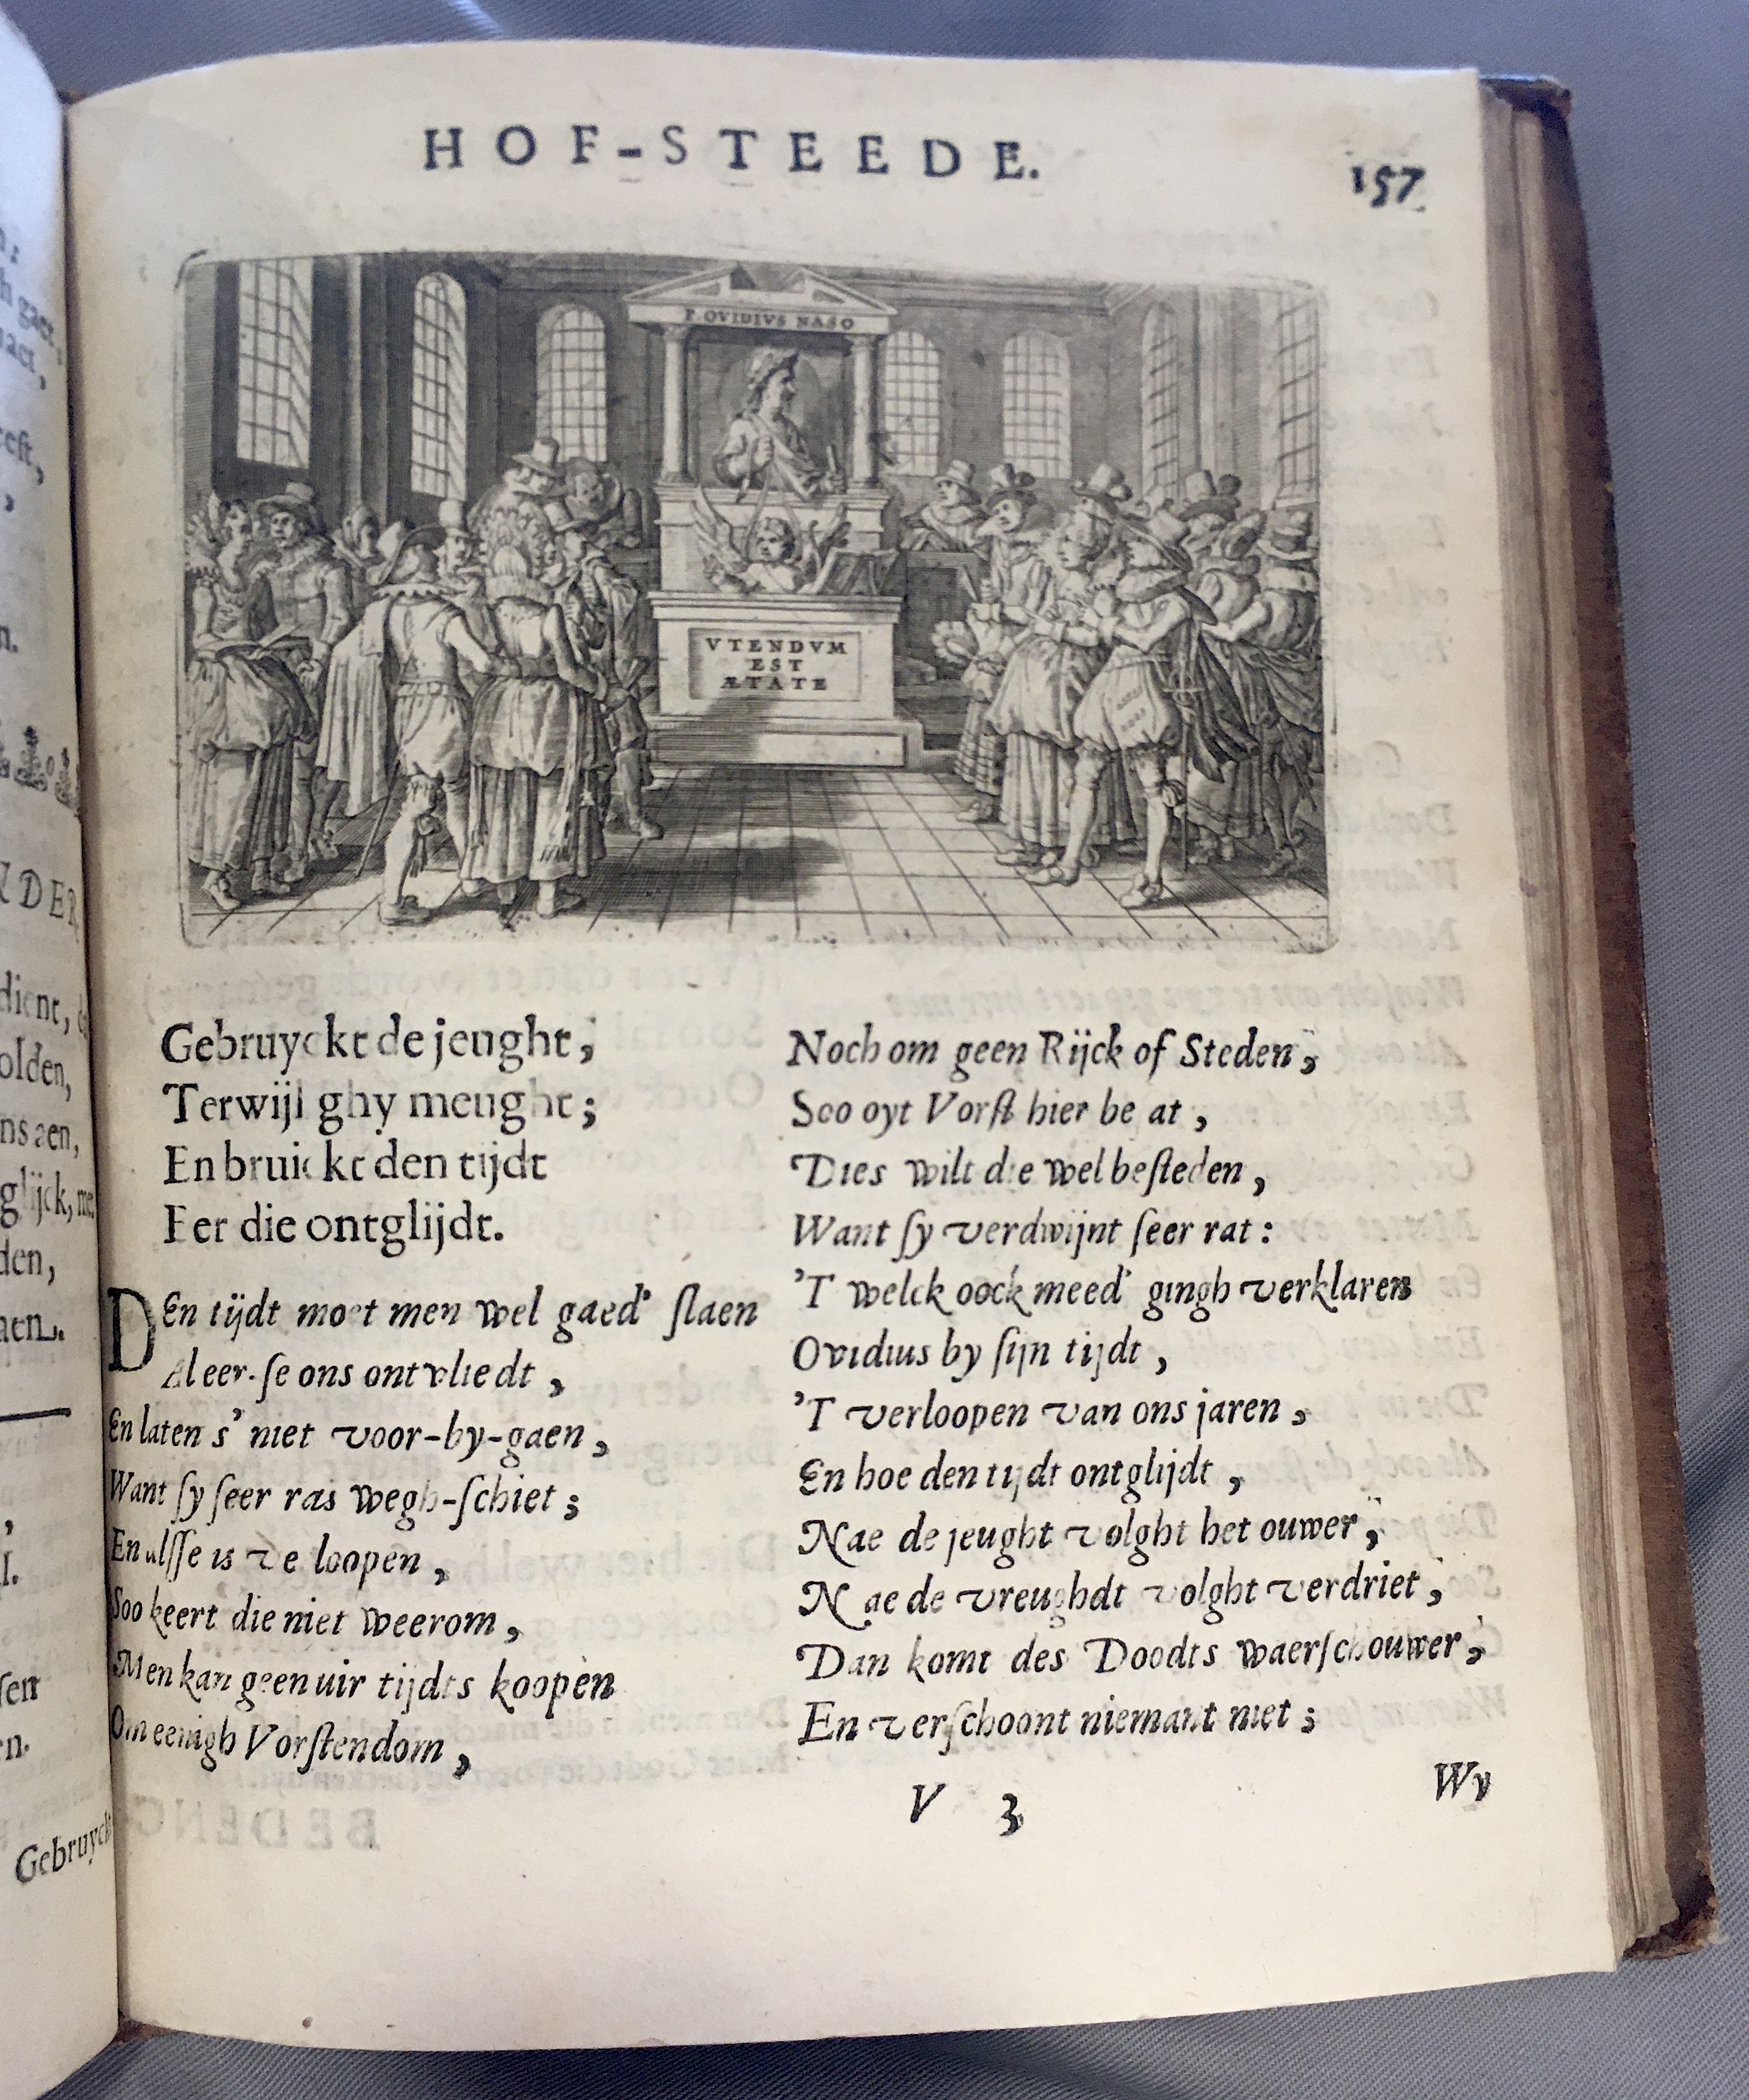 HOF-STEEDE.
157
P. OVIDIVS NASO
VTENDVM
EST
ÆTATE
Gebruyckt de jeught,
Terwijl ghy meught;
En bruickt den tijdt
Eer die ontglijdt.
DEn tijdt moet men wel gaed' slaen
Al eer-se ons ontvliedt,
En laten s' niet voor-by-gaen,
Want sy seer ras wegh-schiet;
En alsse is ve loopen,
Soo keert die niet weerom,
Men kan geen uir tijdts koopen
Om eenigh Vorstendom,
Noch om geen Rijck of Steden,
Soo oyt Vorst hier be at,
Dies wilt die wel besteden,
Want sy verdwijnt seer rat:
'T welck oock meed' gingh verklaren
Ovidius by sijn tijdt,
'T verloopen van ons jaren,
En hoe den tijdt ontglijdt,
Nae de jeught volght het ouwer,
Nae de vreughdt volght verdriet,
Dan komt des Doodts waerschouwer,
En verschoont niemant niet;
V 3
Wy
NDER
dient,
olden,
glijck,
den,
Gebruyckt